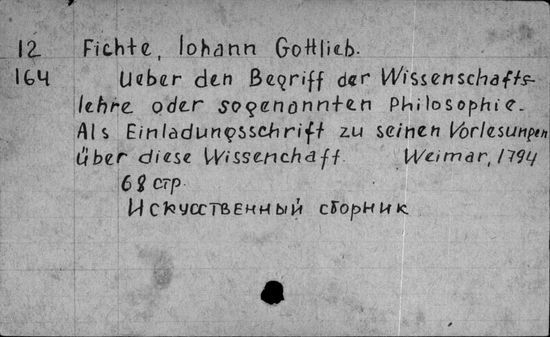 12 Fichte, Iohann Gottlieb.
164 Ueber den Begriff der Wissenschafts-
lehre oder sogenannten Philosophie.
Als Einladungsschrift zu seinen Vorlesungen
über diese Wissenchaft. Weimar, 1794
68 стр.
Искусственный сборник